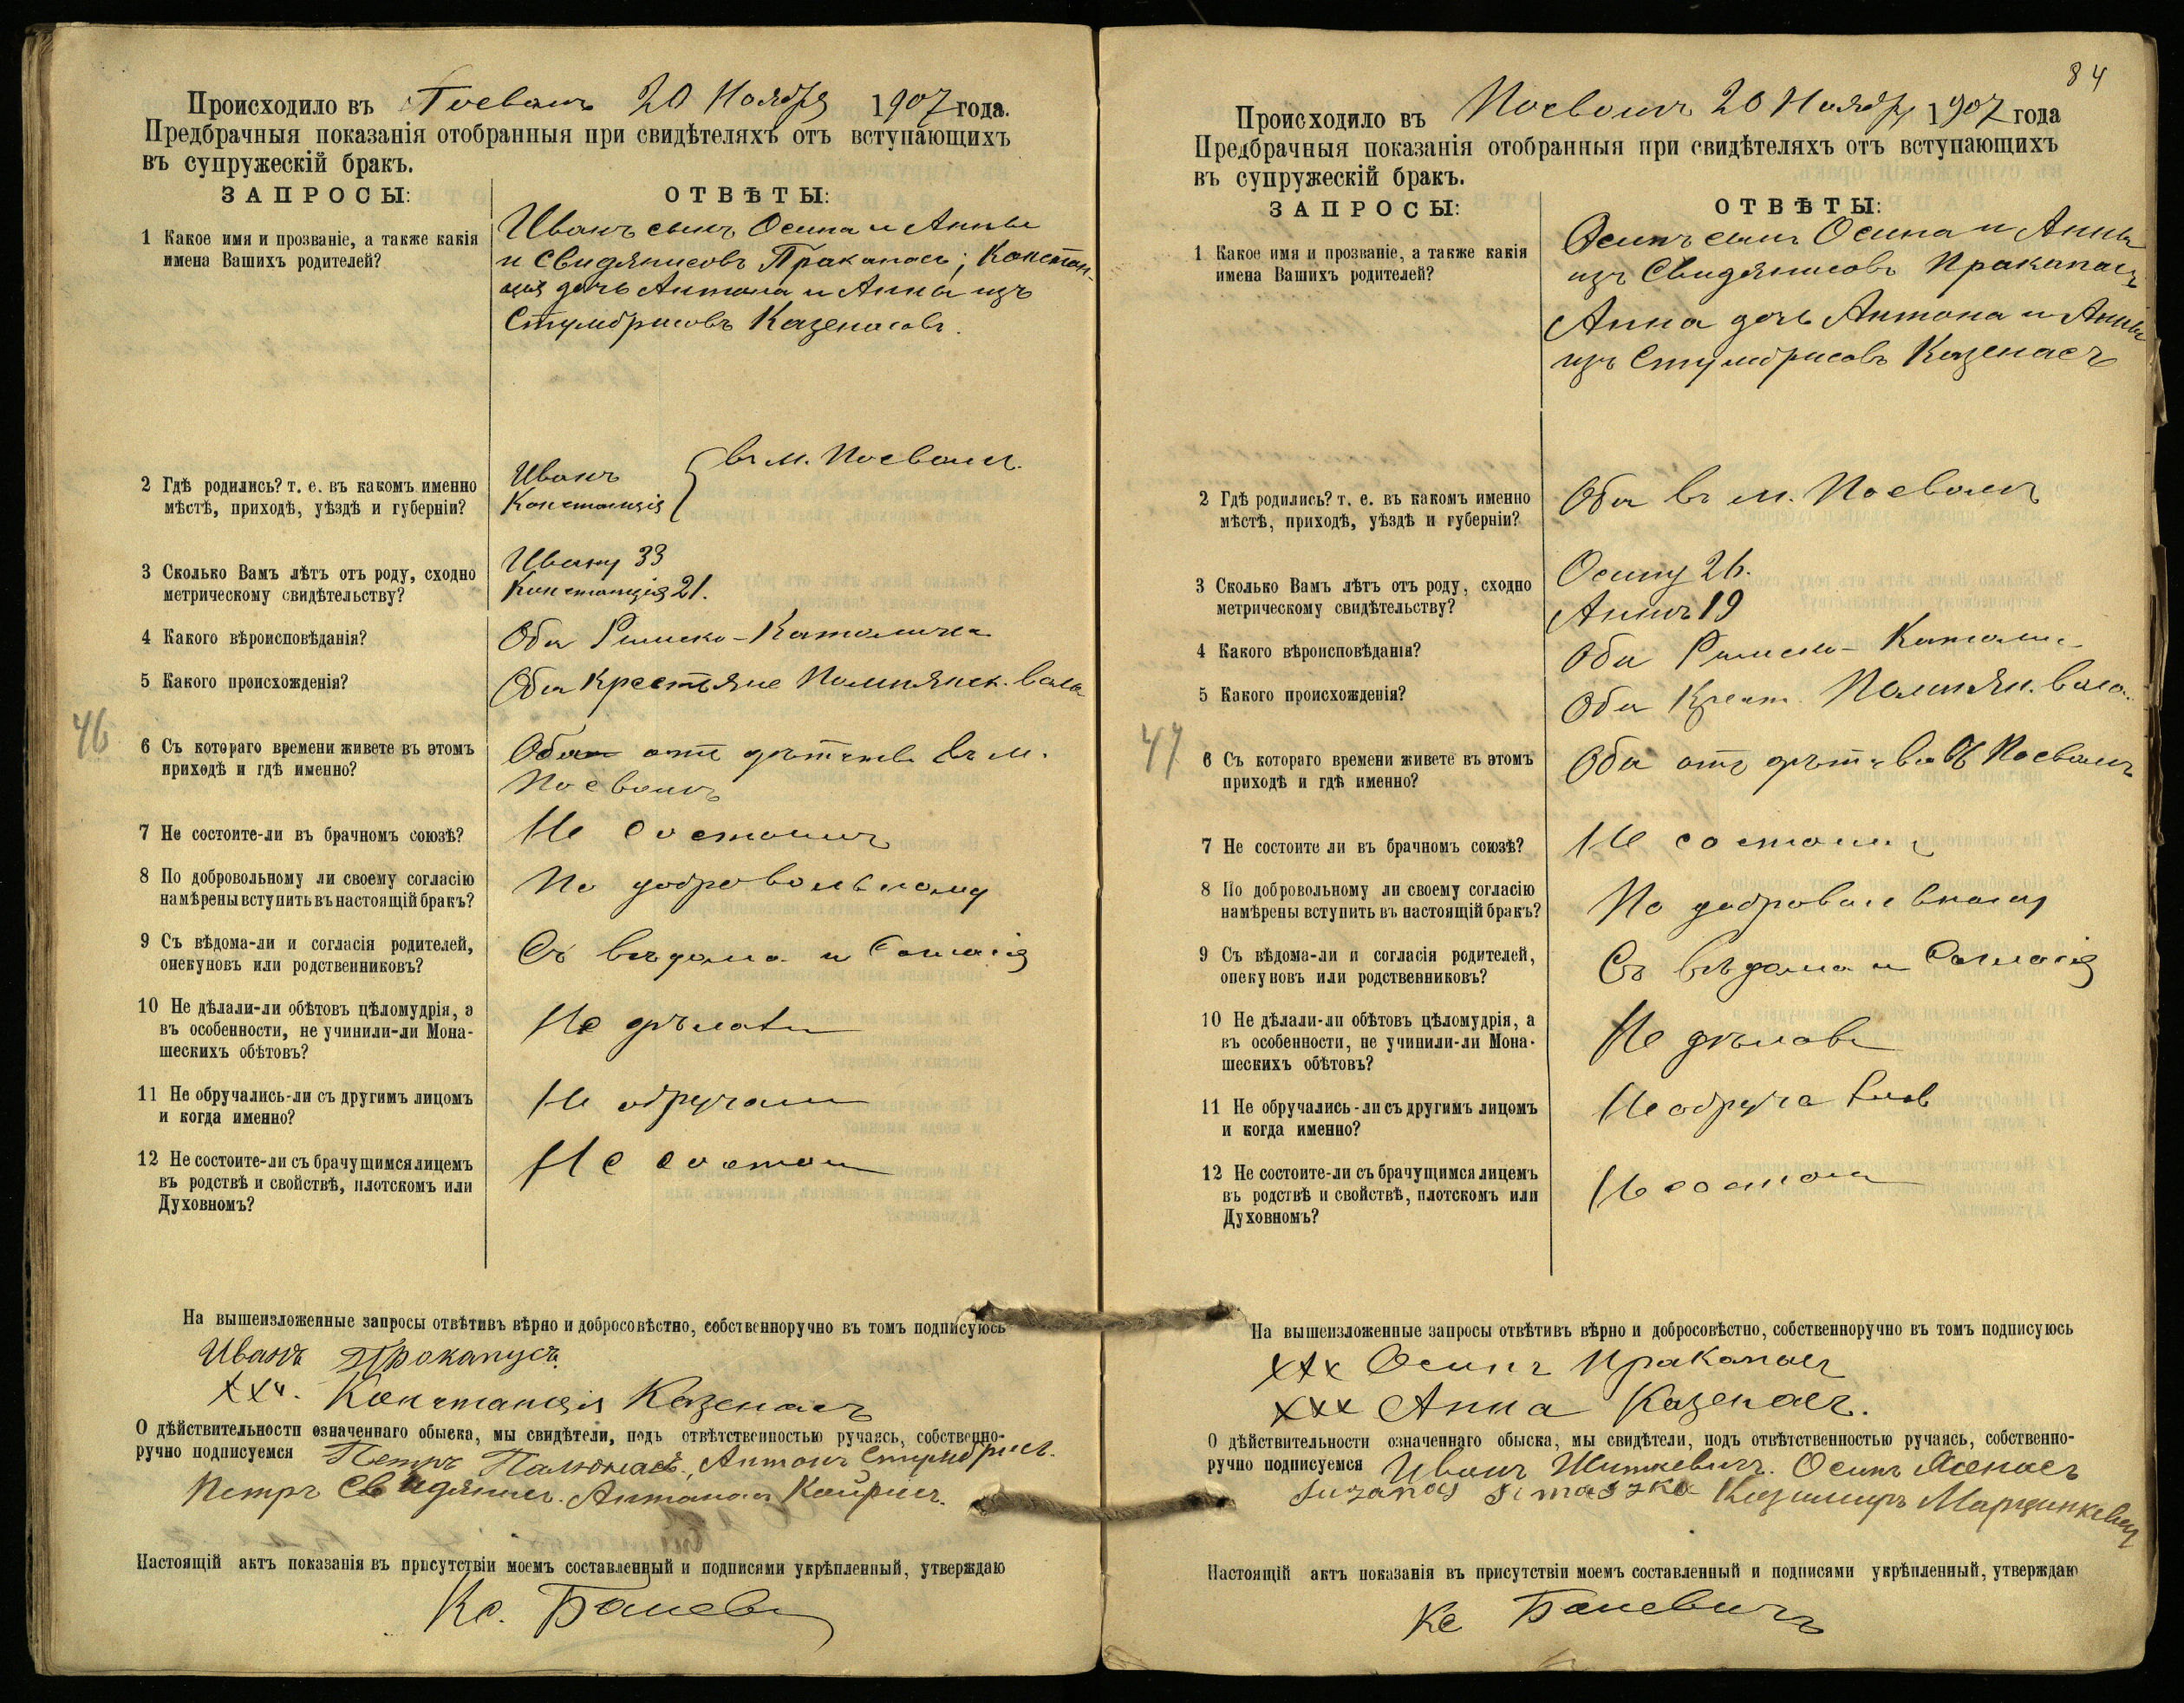 Происходило въ Посволь 20 Ноября 1907 года.
Предбрачныя показанія отобранныя при свидѣтеляхъ отъ вступающихъ
въ супружескій бракъ.
ЗАПРОСЫ:
ОТВѢТЫ:
1 Какое имя и прозваніе, а также какія
имена Вашихъ родителей?
Иванъ сынъ Осипа и Анны
и Свидянисовъ Пракапась; Констан-
ція дочь Антона и Анны изъ
Стумбрисовъ Казенасовъ.
2 Гдѣ родились? т. е. въ какомъ именно
мѣстѣ, приходѣ, уѣздѣ и губерніи?
Иванъ
Констанція
въ м. Посволѣ.
3 Сколько Вамъ лѣтъ отъ роду, сходно
метрическому свидѣтельству?
Ивану 33
Констанція 21.
4 Какого вѣроисповѣданія?
Оба Римско-Католика
5 Какого происхожденія?
Оба Крестьяне Помпянск. воло
46
6 Съ котораго времени живете въ этомъ
приходѣ и гдѣ именно?
Оба отъ дѣтств въ м.
Посволь
7 Не состоите-ли въ брачномъ союзѣ?
Не состоимъ
8 По добровольному ли своему согласію
намѣрены вступить въ настоящій бракъ?
По добровольному
9 Съ вѣдома-ли и согласія родителей,
опекуновъ или родственниковъ?
Съ вѣдома и Согласія
10 Не дѣлали-ли обѣтовъ цѣломудрія, а
въ особенности, не учинили-ли Мона-
шескихъ обѣтовъ?
Не дѣлали
11 Не обручались-ли съ другимъ лицомъ
и когда именно?
Не обручали
12 Не состоите-ли съ брачущимся лицемъ
въ родствѣ и свойствѣ, плотскомъ или
Духовномъ?
Не состои
На вышеизложенные запросы отвѣтивъ вѣрно и добросовѣстно, собственноручно въ томъ подписуюсь
Иванъ Прокапусъ.
ххх. Констанція Казенасъ
О дѣйствительности означеннаго обыска, мы свидѣтели, подъ отвѣтственностью ручаясь, собственно-
ручно подписуемся Петръ Палюнасъ, Антонъ Стумбрисъ.
Петръ Свидянисъ. Антонас Кайрисъ.
Настоящій актъ показанія въ присутствіи моемъ составленный и подписями укрѣпленный, утверждаю
Кс. Баневи
84
Происходило въ Посволь 20 Ноября 1907 года
Предбрачныя показанія отобранныя при свидѣтеляхъ отъ вступающихъ
въ супружескій бракъ.
ЗАПРОСЫ:
ОТВѢТЫ:
1 Какое имя и прозваніе, а также какія
имена Вашихъ родителей?
Осипъ сынъ Осипа и Анны
изъ Свидянисовъ Пракапасъ
Анна дочь Антона и Анны
изъ Стумбрисовъ Казенасъ
2 Гдѣ родились? т. е. въ какомъ именно
мѣстѣ, приходѣ, уѣздѣ и губерніи?
Оба въ м. Посволь
3 Сколько Вамъ лѣтъ отъ роду, сходно
метрическому свидѣтельству?
Осипу 26.
Аннѣ 19
4 Какого вѣроисповѣданія?
Оба Римско-Католи
5 Какого происхожденія?
Оба Крест. Помпян. воло.
47
6 Съ котораго времени живете въ этомъ
приходѣ и гдѣ именно?
Оба отъ дѣтства въ Посволь
7 Не состоите ли въ брачномъ союзѣ?
Не состоим
8 По добровольному ли своему согласію
намѣрены вступить въ настоящій бракъ?
По добровольному
9 Съ вѣдома-ли и согласія родителей,
опекуновъ или родственниковъ?
Съ вѣдома и Согласія
10 Не дѣлали-ли обѣтовъ цѣломудрія, а
въ особенности, не учинили-ли Мона-
шескихъ обѣтовъ?
Не дѣлали
11 Не обручались-ли съ другимъ лицомъ
и когда именно?
Не обручались
12 Не состоите-ли съ брачущимся лицемъ
въ родствѣ и свойствѣ, плотскомъ или
Духовномъ?
Не состои
На вышеизложенные запросы отвѣтивъ вѣрно и добросовѣстно, собственноручно въ томъ подписуюсь
ххх Осипъ Пракапасъ
ххх Анна Казенасъ.
О дѣйствительности означеннаго обыска, мы свидѣтели, подъ отвѣтственностью ручаясь, собственно-
ручно подписуемся Иванъ Шиткевичъ. Осипъ
Juzapas Simaszka Казимиръ Марцинкевич
Настоящій актъ показанія въ присутствіи моемъ составленный и подписями укрѣпленный, утверждаю
Кс Баневичъ